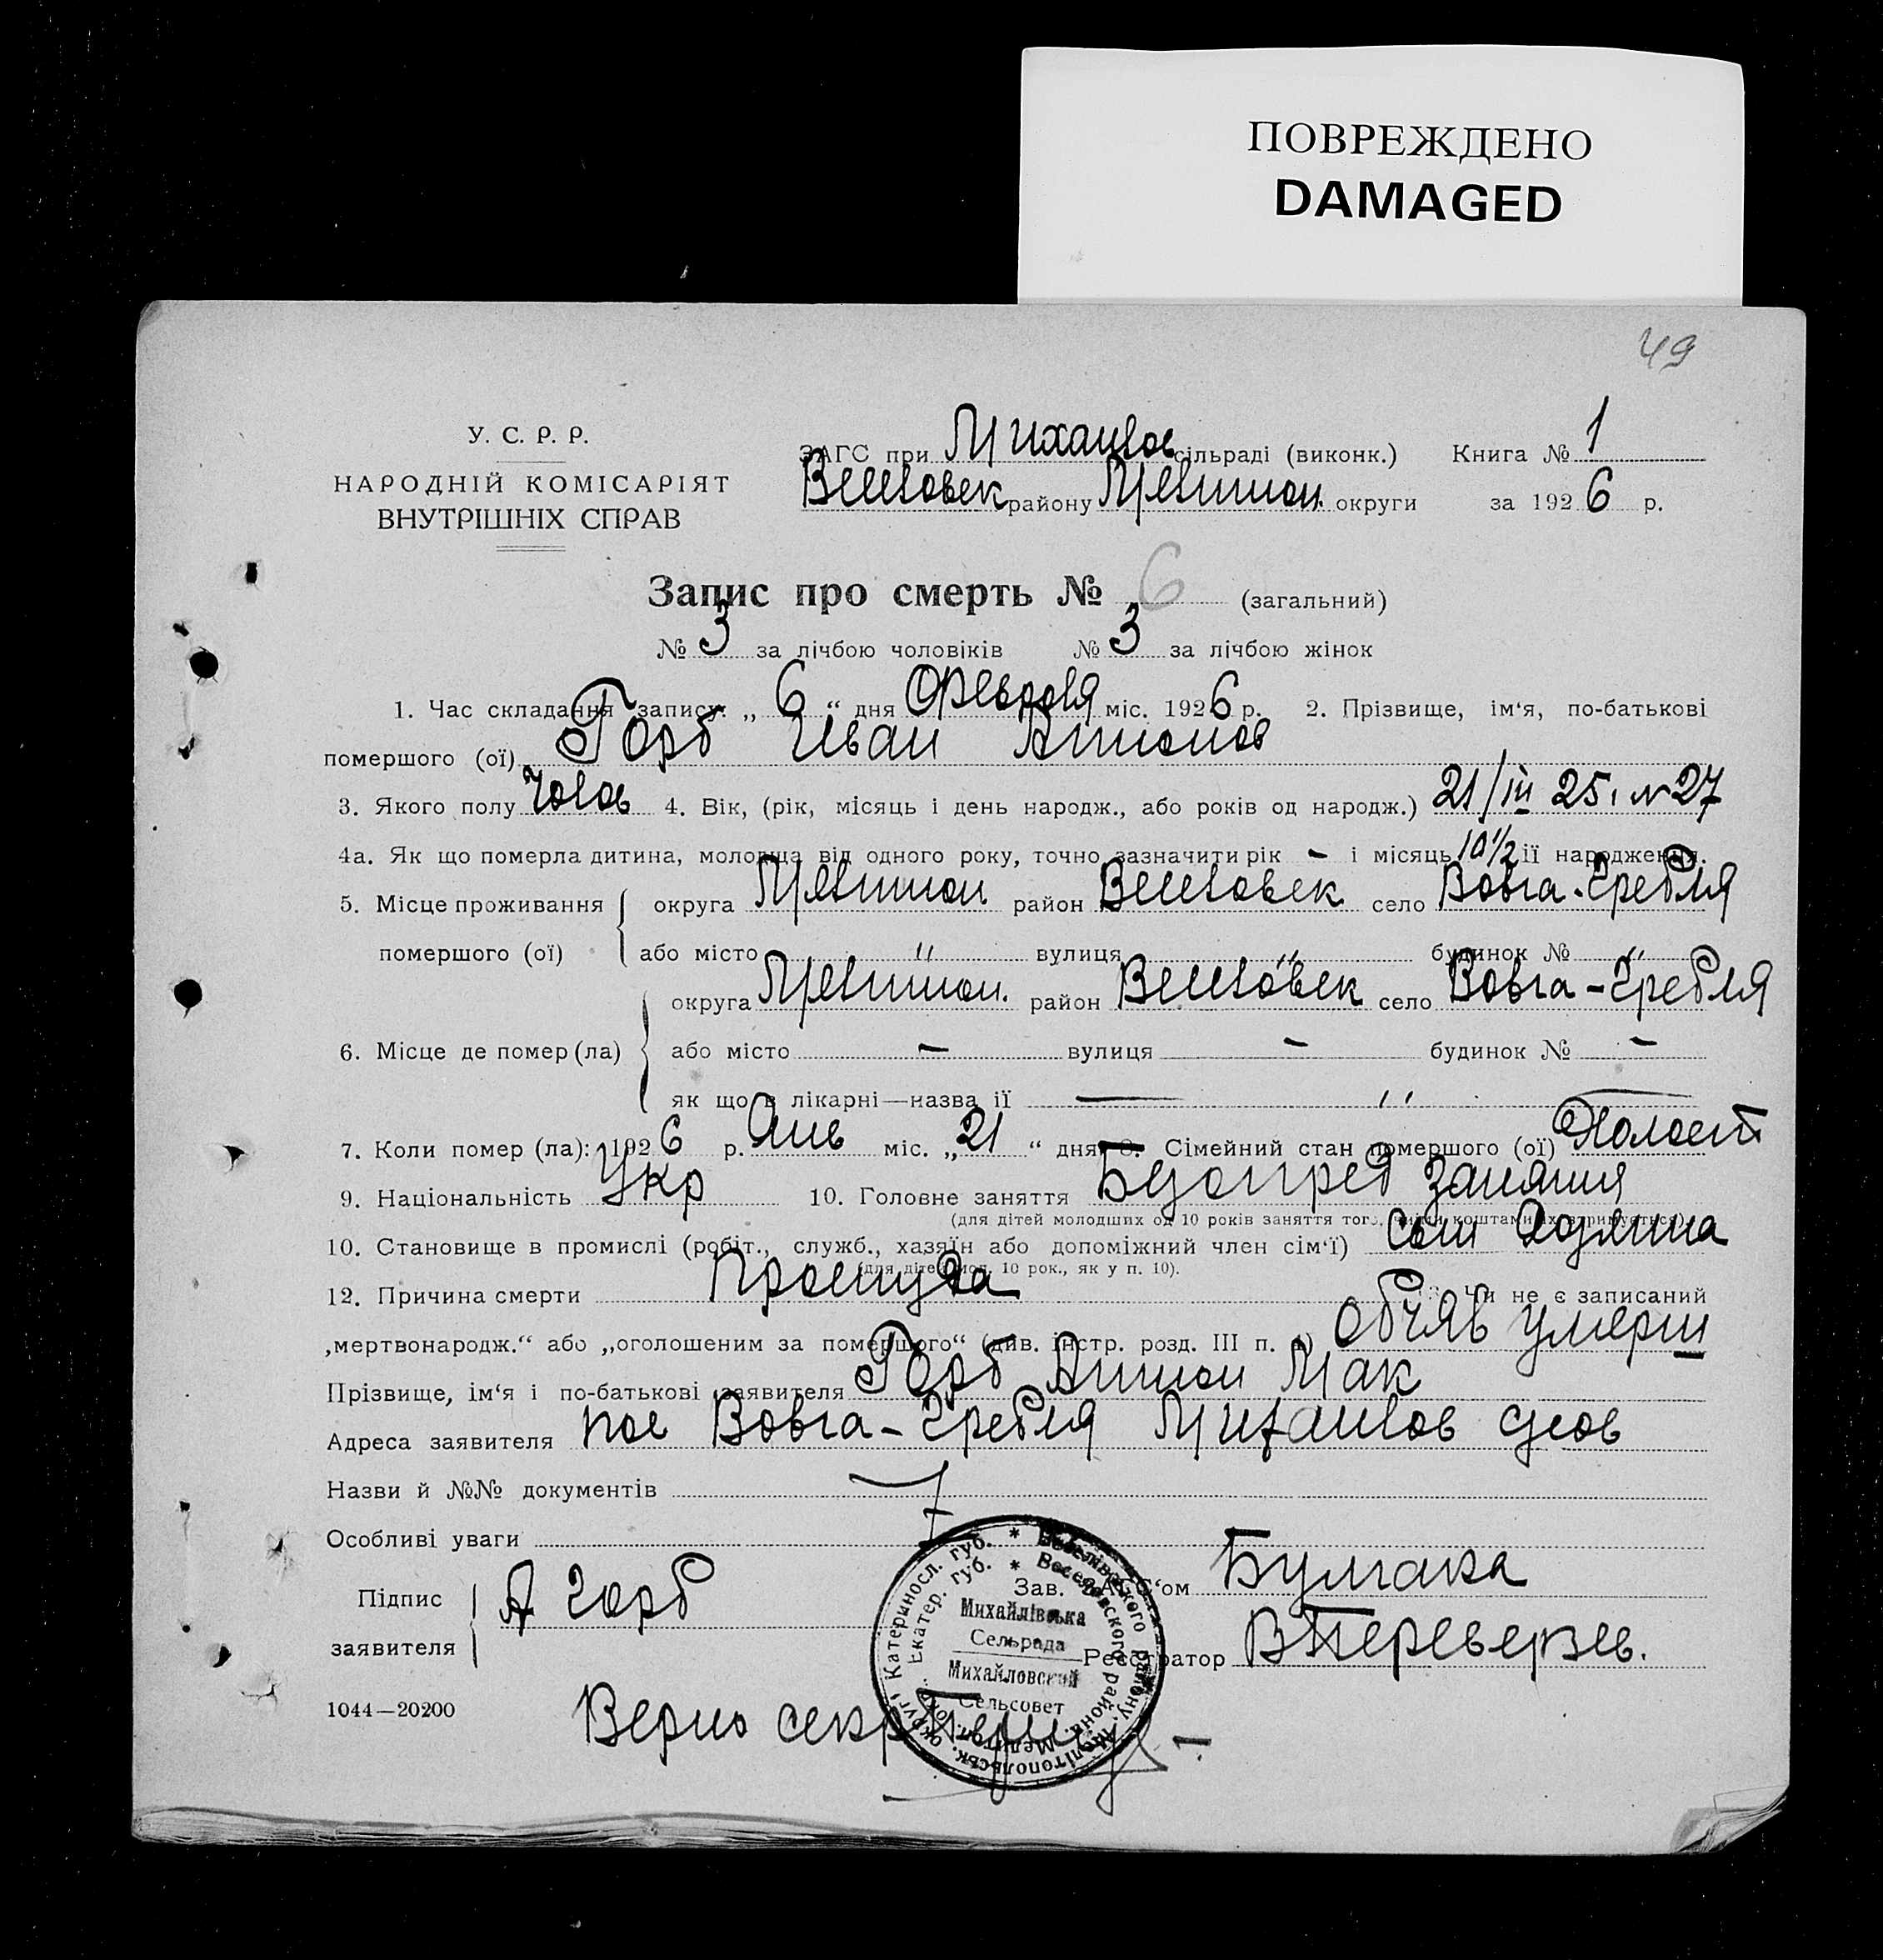 ПОВРЕЖДЕНО
DAMAGED
49
У. С. Р. Р.
НАРОДНІЙ КОМІСАРІЯТ
ВНУТРІШНІХ СПРАВ
ЗАГС при Михайлов сільраді (виконк.) Книга № 1
Веселовск району Мелитоп. округи за 1926 р.
Запис про смерть № 6 (загальний)
№ 3 за лічбою чоловіків № 3 за лічбою жінок
1. Час складання запису: „ 6 “ дня Февраля міс. 1926 р. 2. Прізвище, ім‘я, по-батькові
помершого (ої) Горб Иван Антонов
3. Якого полу Чолов 4. Вік, (рік, місяць і день народж., або років од народж.) 21/III 25. № 27
4а. Як що померла дитина, молодща від одного року, точно зазначити рік - і місяць 10½ її народження.
5. Місце проживання округа Мелитоп район Веселовск село Вовча-Гребля
помершого (ої) або місто " вулиця " будинок № "
округа Мелитоп. район Веселовск село Вовча-Гребля
6. Місце де помер (ла) або місто - вулиця - будинок № -
як що в лікарні—назва її — "
7. Коли помер (ла): 1926 р. Янв міс. „ 21 “ дня 8. Сімейний стан помершого (ої) Холост
9. Національність Укр 10. Головне заняття занятия
(для дітей молодших од 10 років заняття того, чиїми коштами їх втримується)
10. Становище в промислі (робіт., служб., хазяїн або допоміжний член сім‘ї) сын
(для дітей мол. 10 рок., як у п. 10).
12. Причина смерти Простуда 13. Чи не є записаний
„мертвонародж.“ або „оголошеним за помершого“ (див. інстр. розд. III п. 4) умерш
Прізвище, ім‘я і по-батькові заявителя Горб Антон Мак
Адреса заявителя пос Вовча-Гребля Михайлов
Назви й №№ документів
Особливі уваги
Підпис заявителя А Горб
Зав. ЗАГС‘ом Булгака
Реєстратор В Переверзев.
1044—20200
Верно секр
Катериносл. губ. * Веселівського району, Мелітопольськ. округи
Екатер. губ. * Веселовского района, Мелитоп. окр.
Михайлівська
Сельрада
Михайловский
Сельсовет